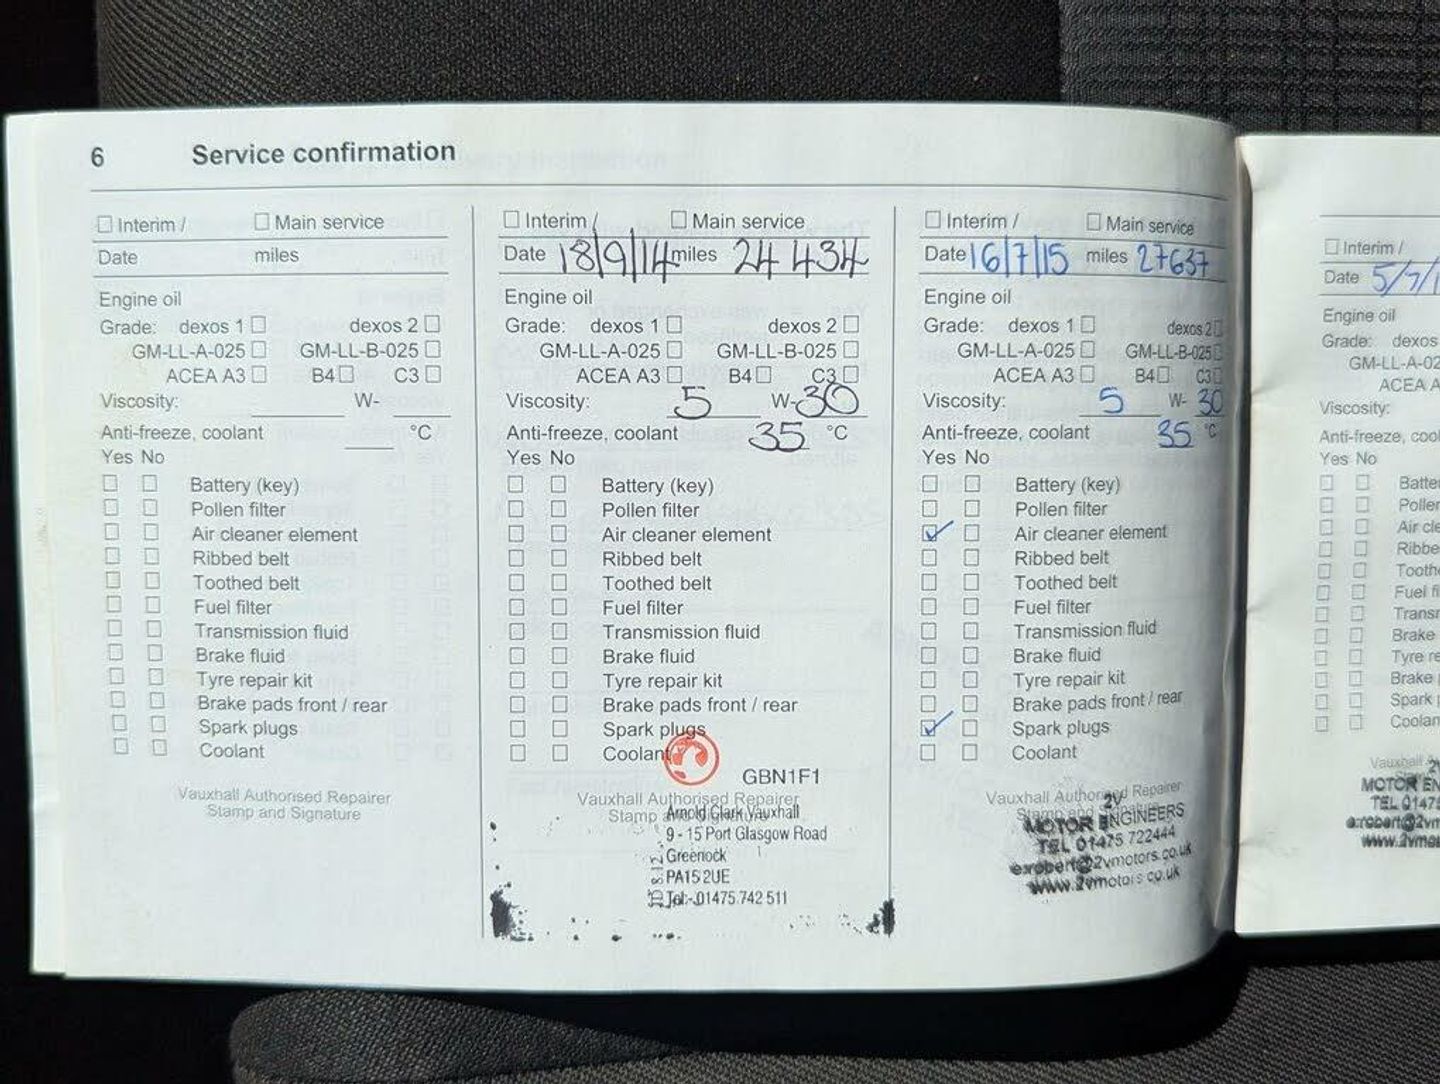 6 Service confirmation
Interim / Main service
Date miles
Engine oil
Grade: dexos 1 dexos 2
GM-LL-A-025 GM-LL-B-025
ACEA A3 B4 C3
Viscosity: W-
Anti-freeze, coolant °C
Yes No
Battery (key)
Pollen filter
Air cleaner element
Ribbed belt
Toothed belt
Fuel filter
Transmission fluid
Brake fluid
Tyre repair kit
Brake pads front / rear
Spark plugs
Coolant
Vauxhall Authorised Repairer
Stamp and Signature
Interim / Main service
Date 18/9/14 miles 24 434
Engine oil
Grade: dexos 1 dexos 2
GM-LL-A-025 GM-LL-B-025
ACEA A3 B4 C3
Viscosity: 5 W-30
Anti-freeze, coolant 35 °C
Yes No
Battery (key)
Pollen filter
Air cleaner element
Ribbed belt
Toothed belt
Fuel filter
Transmission fluid
Brake fluid
Tyre repair kit
Brake pads front / rear
Spark plugs
Coolant
GBN1F1
Vauxhall Authorised Repairer
Stamp and Signature
Arnold Clark Vauxhall
9 - 15 Port Glasgow Road
Greenock
PA15 2UE
Tel:- 01475 742 511
Interim / Main service
Date 16/7/15 miles 27637
Engine oil
Grade: dexos 1 dexos 2
GM-LL-A-025 GM-LL-B-025
ACEA A3 B4 C3
Viscosity: 5 W- 30
Anti-freeze, coolant 35 °C
Yes No
Battery (key)
Pollen filter
Air cleaner element
Ribbed belt
Toothed belt
Fuel filter
Transmission fluid
Brake fluid
Tyre repair kit
Brake pads front / rear
Spark plugs
Coolant
Vauxhall Authorised Repairer
Stamp and Signature
2V
MOTOR ENGINEERS
TEL 01475 722444
www.2vmotors.co.uk
Interim /
Date 5/7/1
Engine oil
Grade: dexos
GM-LL-A-02
ACEA A
Viscosity:
Anti-freeze, cool
Yes No
Batte
Pollen
Air cle
Ribbe
Tooth
Fuel fi
Transm
Brake
Tyre re
Brake
Spark
Coolan
Vauxhall
2V
MOTOR EN
TEL 01475
www.2vmo